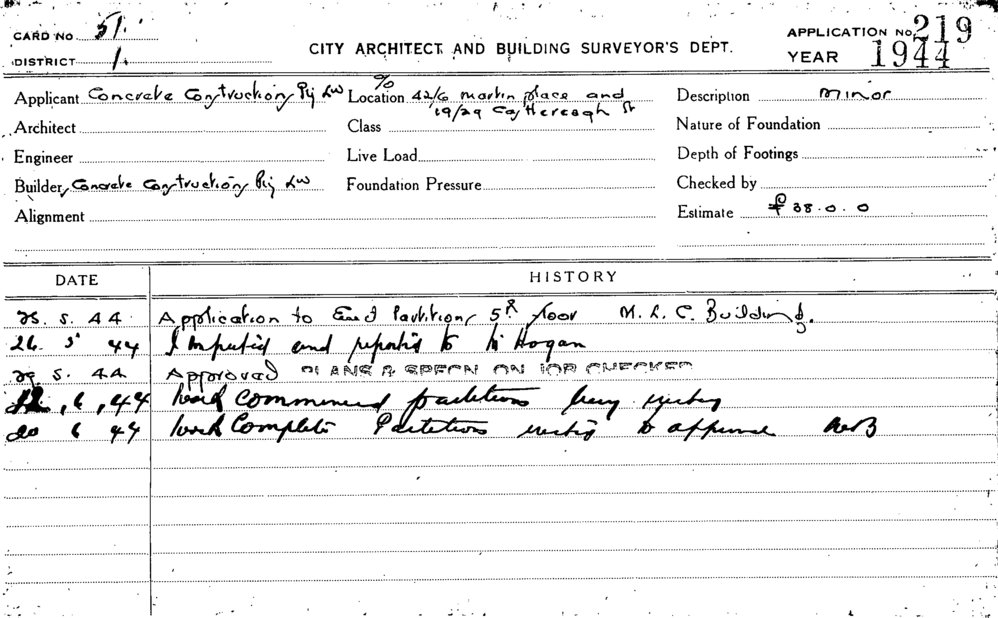 CARD NO 51.
DISTRICT 1.
CITY ARCHITECT AND BUILDING SURVEYOR'S DEPT.
APPLICATION No. 219
YEAR 1944
Applicant Concrete Construction Pty Ltd
Architect
Engineer
Builder Concrete Construction Pty Ltd
Alignment
Location 42/6 Martin Place and
19/29 Castlereagh St
Class
Live Load
Foundation Pressure
Description Minor
Nature of Foundation
Depth of Footings
Checked by
Estimate £38.0.0
DATE HISTORY
25. 5. 44 Application to Erect Partitions 5th floor M. L. C. Building.
26. 5 44 I Inspected and reported to Mr Hogan
29 5. 44 Approved PLANS & SPECN ON JOB CHECKED
6, 44 Work Commenced partitions being
20 6 44 Work Complete Partitions to approval